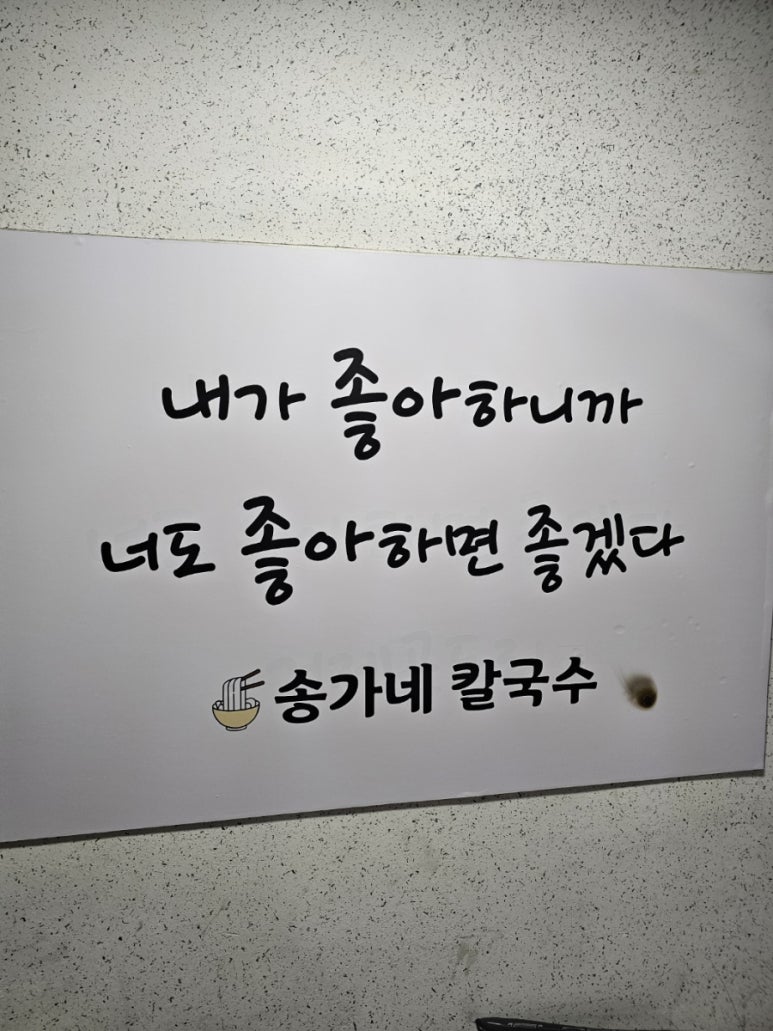 내가 좋아하니까
너도 좋아하면 좋겠다
송가네 칼국수